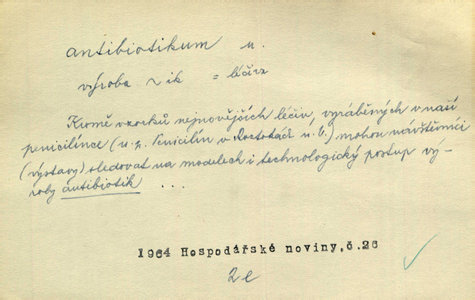 antibiotikum n.
výroba ~ik = léčiv
Kromě vzorků nejnovějších léčiv, vyráběných v naší
penicilínce (n.p. Penicilín v Roztokách u. b.) mohou návštěvníci
(výstavy) sledovat na modelech i technologický postup vý-
roby antibiotik ...
1964 Hospodářské noviny, č.26
2e